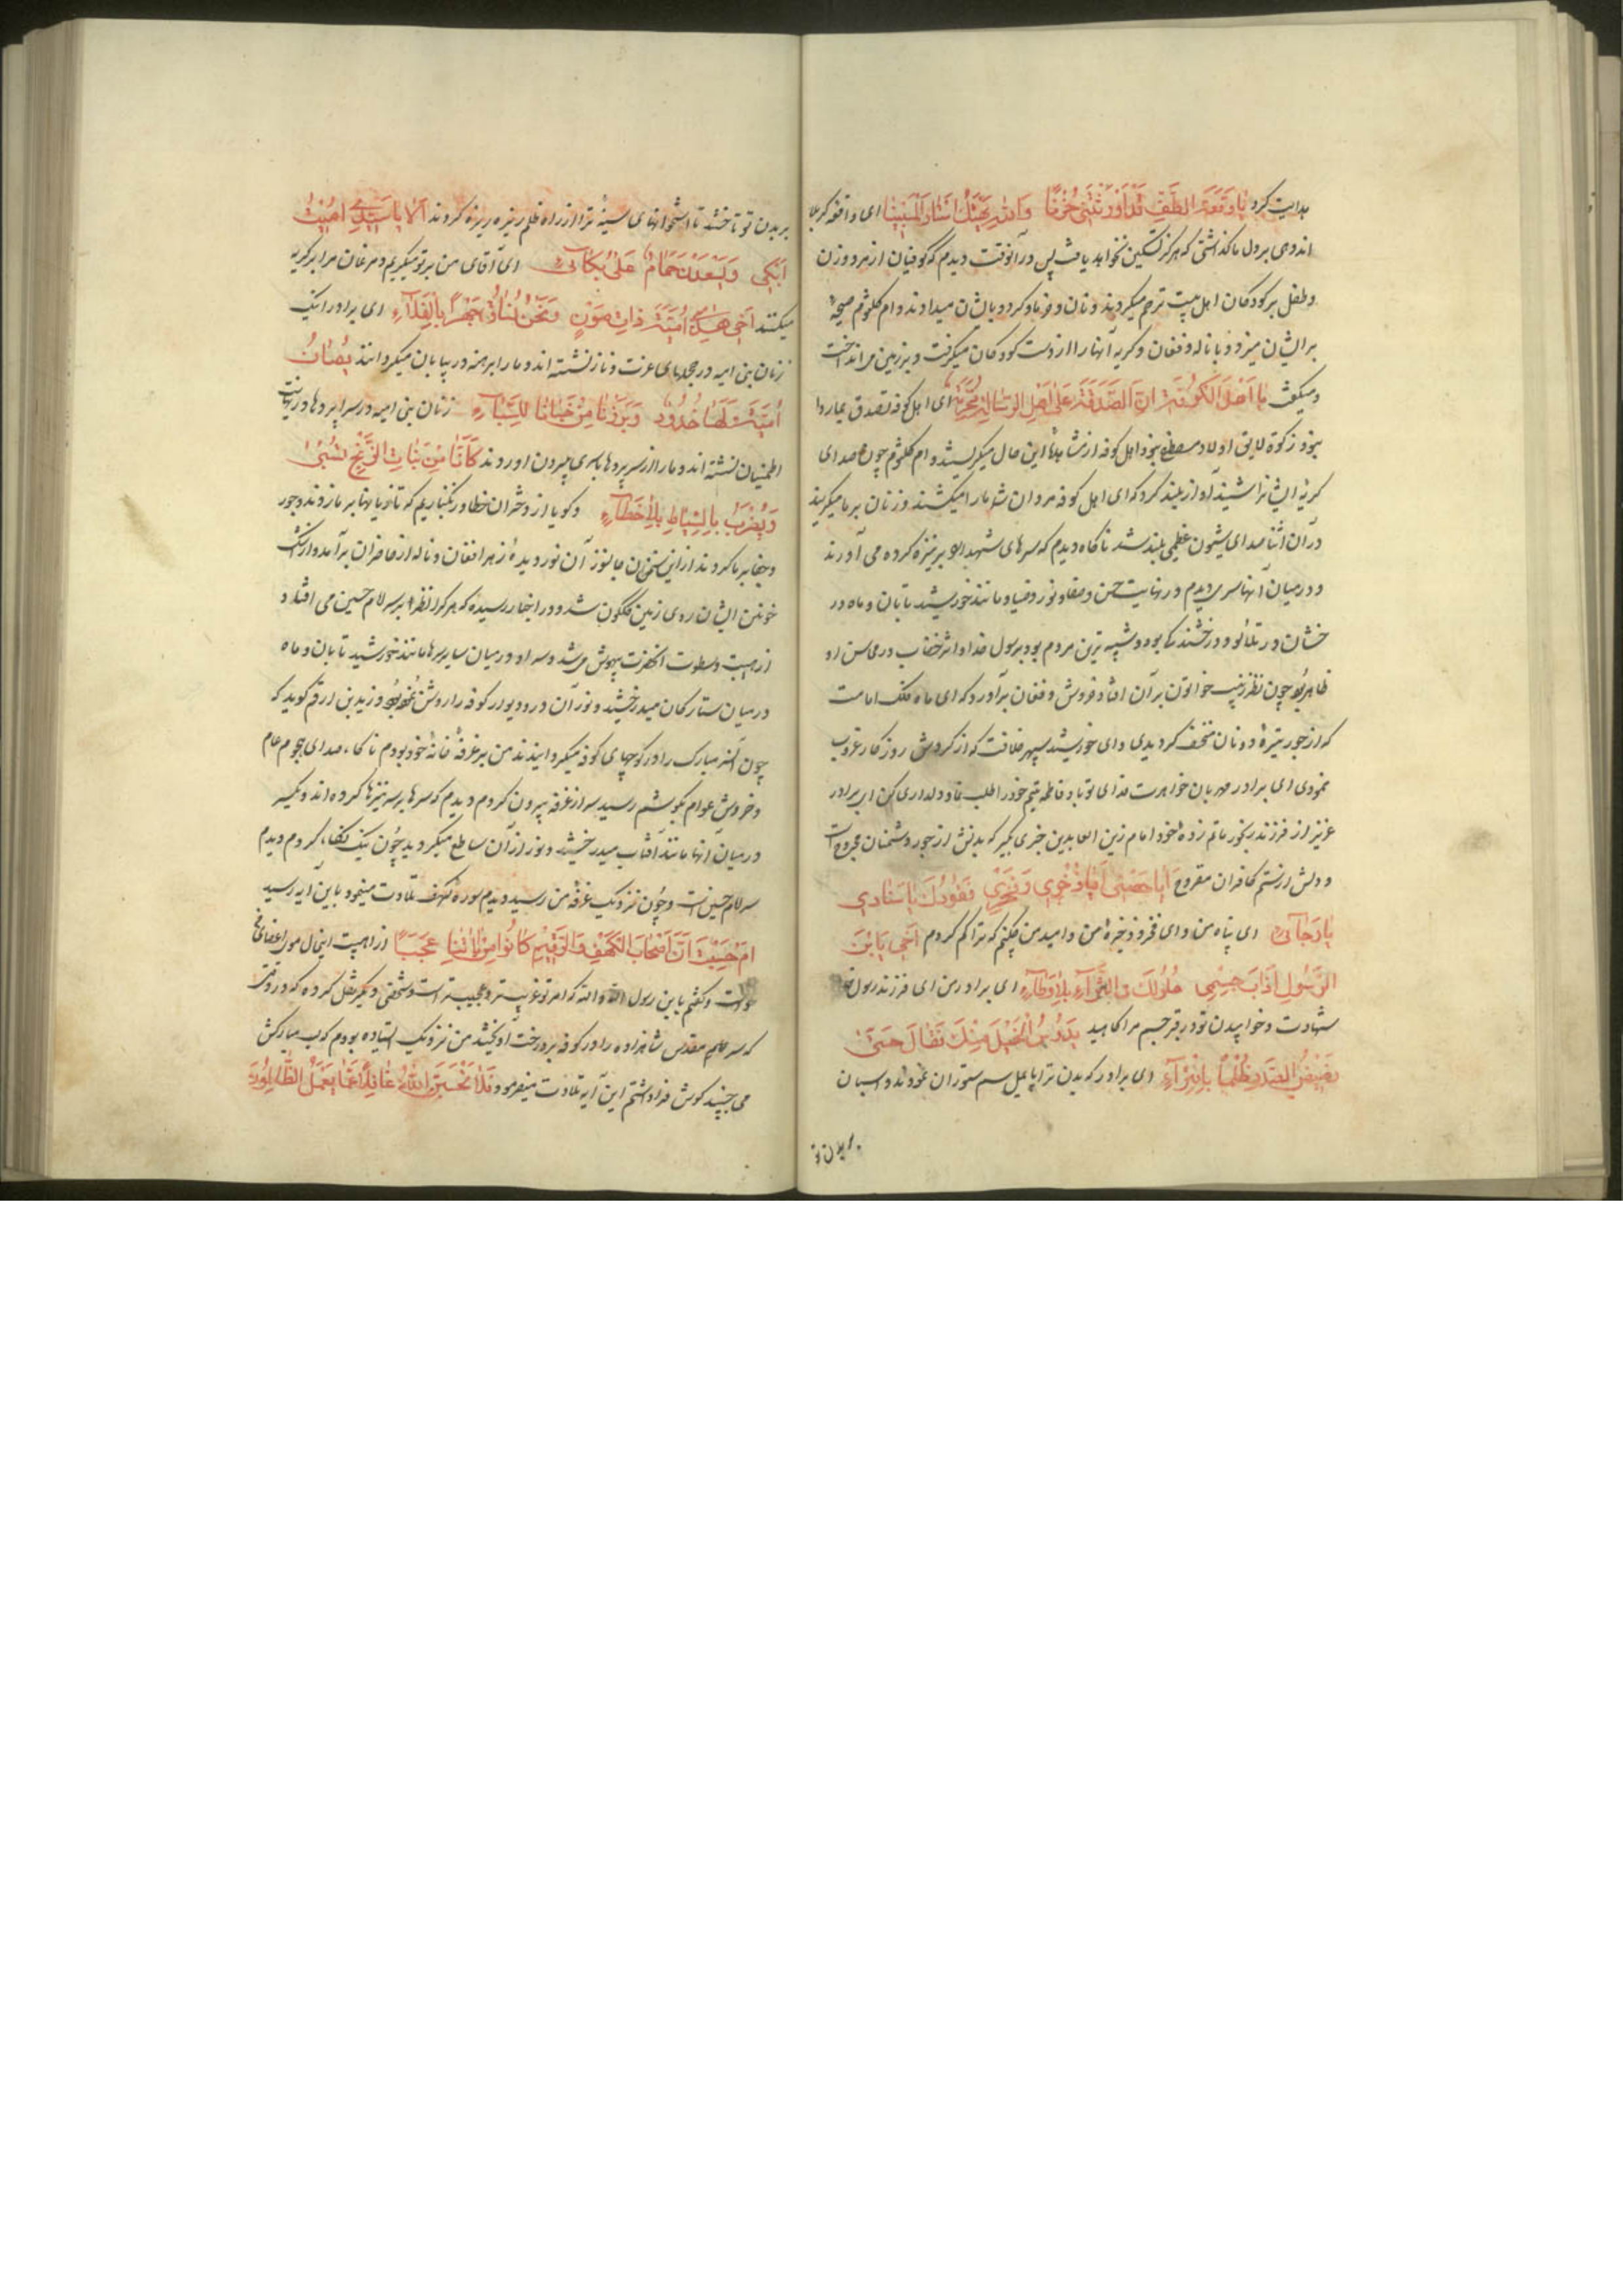 هدایت کرد یا وقعة الطف قد اورثتنی حزنا والله یهتک استار المبینا ای واقعه کربلا
اندوهی بر دل ما گذاشتی که هرگز تسکین نخواهد یافت پس در آنوقت دیدم که کوفیان از مرد و زن
و طفل بر کودکان اهل بیت ترحم میکردند و نان و خرما و گردو بایشان میدادند و ام کلثوم صیحه
بر ایشان میزد و با ناله و فغان و گریه آنها را از دست کودکان میگرفت و بر زمین می انداخت
و میگفت یا اهل الکوفة ان الصدقة علی اهل الرسالة محرمة ای اهل کوفه تصدق بما روا
نبود و زکوة لایق اولاد مصطفی نبود و اهل کوفه از مشاهده این حال میگریستند و ام کلثوم چون صدای
گریه ایشانرا شنید آواز بلند کرد که ای اهل کوفه مردان شما ما را میکشند و زنان بر ما میگریند
در آن اثنا صدای شیون عظیمی بلند شد ناگاه دیدم که سرهای شهدا را بر نیزه کرده می آورند
و در میان آنها سری دیدم در نهایت حسن و صفا و نور و ضیا و مانند خورشید تابان و ماه در
خشان در تلالو و درخشندگی بود و شبیه ترین مردم بود برسول خدا و اثر خضاب در محاسن او
ظاهر بود چون نظر زینب خواتون بر آن افتاد خروش و فغان برآورد که ای ماه فلک امامت
که از جور تیره دونان منخسف گردیدی و ای خورشید سپهر خلافت که از گردش روزگار غروب
نمودی ای برادر مهربان خواهرت فدای تو باد فاطمه یتیم خود را طلب نما و دلداری کن ای برادر
عزیز از فرزند رنجور ماتم زده خود امام زین العابدین خبری بگیر که بدنش از جور دشمنان مجروحست
و دلش از ستم کافران مقروح ایا حصنی ایا ذخری و فخری فقودک یا سنادی
یا رجائی ای پناه من و ای فخر و ذخیره من و امید من چکنم که ترا گم کردم اخی یابن
الرسول اذاب جسمی حلولک فی الثراء بلا وطاء ای برادر من ای فرزند رسول خدا
شهادت و خوابیدن تو در قبر جسم مرا کاهید یدوس الخیل منک تعال حتی
یضیض الصدر ظلما بانبراء ای برادر که بدن ترا پایمال سم ستوران نمودند و اسبان
بر بدن تو
بر بدن تو تاختند تا استخوانهای سینه ترا از راه ظلم ریزه ریزه کردند الا یا سیدی امیت
ابکی ویسعدن حمام علی بکائی ای آقای من بر تو میگریم و مرغان مرا بر گریه
میکنند اخی هذه امیة ذات صون ونحن نساق جهرا بالفلاء ای برادر اینک
زنان بنی امیه در حجله های عزت و ناز نشسته اند و ما را برهنه در بیابان میگردانند یصان
امیة لها خدود وبرزنا من خبانا للسباء زنان بنی امیه در سراپرده ها در نهایت
اطمینان نشسته اند و ما را از سراپرده ها باسری بیرون آوردند کانا من بنات الزنج نسبی
ویضرب بالسیاط بلا خطاء و گویا از دختران خطا و زنگباریم که تازیانها بر ما زدند و جور
و جفا بر ما کردند از این سخنان جانسوز آن نور دیده زهرا افغان و ناله از حاضران برآمد و از اشک
خونین ایشان روی زمین گلگون شد و در اخبار رسیده که هر کرا نظر بر سر امام حسین می افتاد
از هیبت و سطوت آنحضرت بیهوش میشد و سر او در میان سایر سرها مانند خورشید تابان و ماه
در میان ستارگان میدرخشید و نور آن در و دیوار کوفه را روشن نموده بود و زید بن ارقم گوید که
چون آن سر مبارک را در کوچهای کوفه میگردانیدند من بر غرفه خانه خود بودم ناگاه صدای هجوم عام
و خروش عوام بگوشم رسید سر از غرفه بیرون کردم دیدم که سرها بر سر نیزها کرده اند و یکسر
در میان آنها مانند آفتاب میدرخشید و نور از آن ساطع میگردید چون نیک نگاه کردم دیدم
سر امام حسین است و چون نزدیک غرفه من رسید دیدم سوره کهف تلاوت مینمود باین آیه رسید
ام حسبت ان اصحاب الکهف والرقیم کانوا من آیاتنا عجبا از هیبت اینحال مو بر اعضای من
راست و گفتم یابن رسول الله والله که امر تو غریبتر و عجیبتر است و شخصی دیگر نقل کرده که در وقتی
که سر مقدس شاهزاده را در کوفه بر درخت آویختند من نزدیک ایستاده بودم که لب مبارکش
می جنبید گوش فرا داشتم این آیه تلاوت میفرمود فلا تحسبن الله غافلا عما یعمل الظالمون